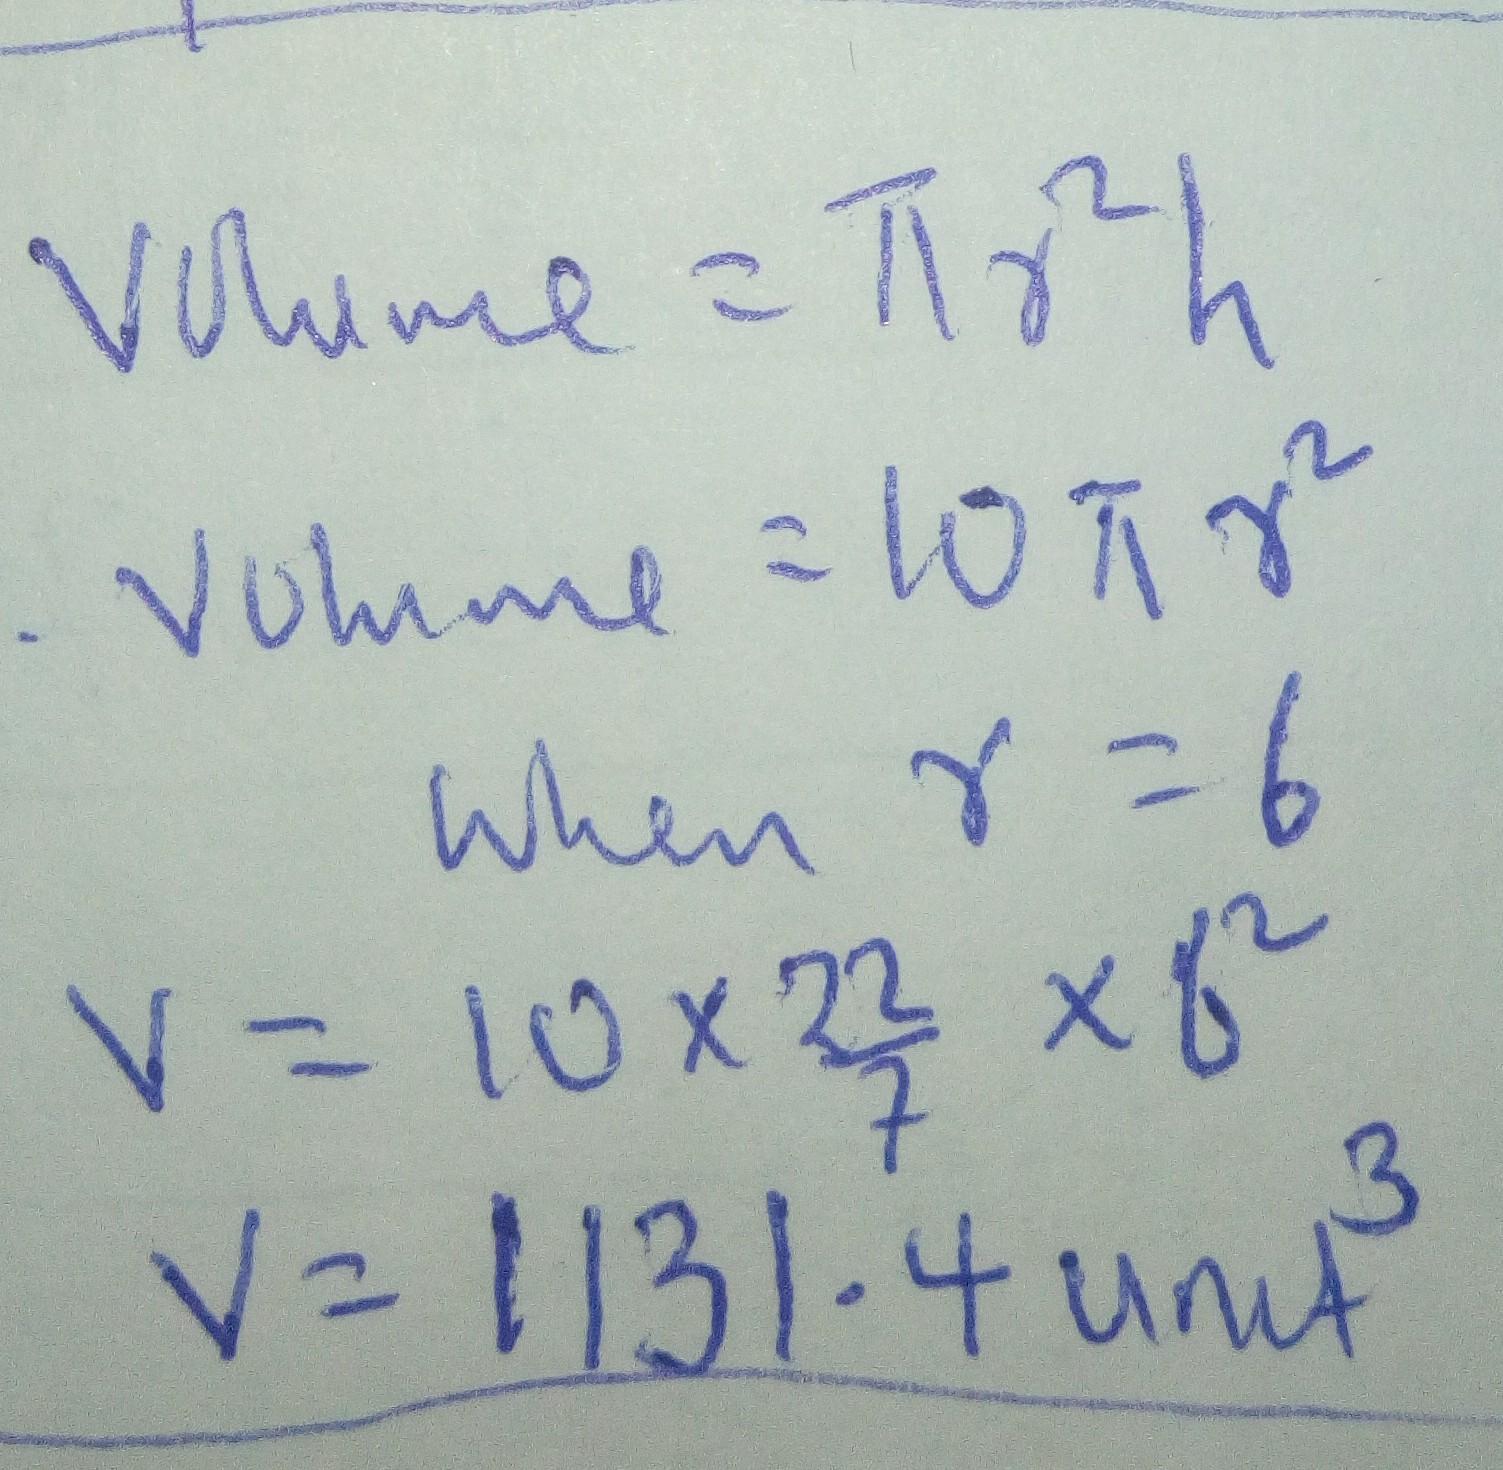 Volume = πr²h
Volume = 10πr²
when r = 6
V = 10 × 22/7 × 6²
V = 1131.4 unit³